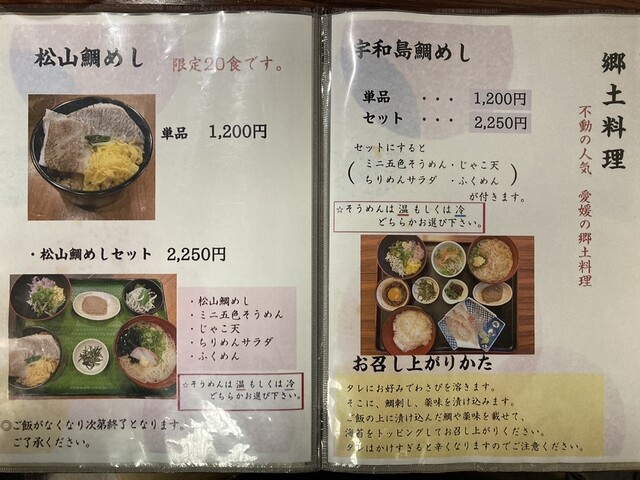 松山鯛めし 限定20食です。
単品 1,200円
・松山鯛めしセット 2,250円
・松山鯛めし
・ミニ五色そうめん
・じゃこ天
・ちりめんサラダ
・ふくめん
☆そうめんは温もしくは冷
どちらかお選び下さい。
◎ご飯がなくなり次第終了となります。
ご了承ください。
郷土料理
不動の人気 愛媛の郷土料理
宇和島鯛めし
単品 ・・・ 1,200円
セット ・・・ 2,250円
セットにすると
(ミニ五色そうめん・じゃこ天
ちりめんサラダ ・ふくめん)
が付きます。
☆そうめんは温もしくは冷
どちらかお選び下さい。
お召し上がりかた
タレにお好みでわさびを溶きます。
そこに、鯛刺し、薬味を漬け込みます。
ご飯の上に漬け込んだ鯛や薬味を載せて、
海苔をトッピングしてお召し上がりください。
タレはかけすぎると辛くなりますのでご注意ください。